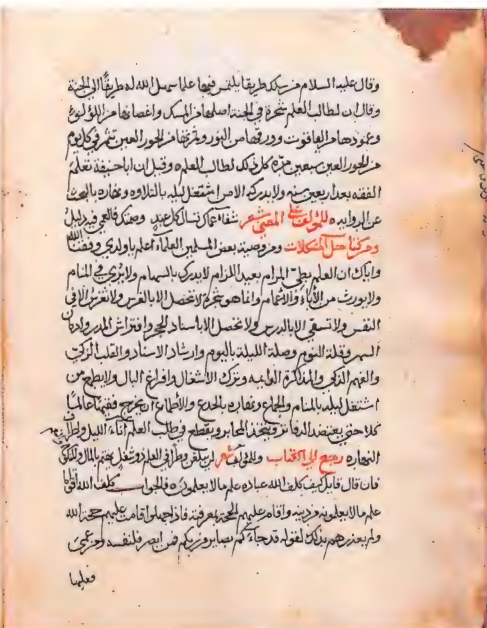 وقال عليه السلام من سلك طريقا يلتمس فيها علما سهل الله له طريقا الى الجنة
وقال ان لطالب العلم شجرة في الجنة اصلها من المسك واغصانها من اللؤلؤ
وعمودها من الياقوت وورقها من النور وثمرتها من الحور العين تثمر في كل يوم
من الحور العين سبعين مرة كل ذلك لطالب العلم وقيل ان ابا حنيفة تعلم
الفقه بعد اربعين سنه ولا يدركه الا من اشتغل ليله بالتلاوه ونهاره بالبحث
عن الروايه للمؤلف شعر شفاء
ومركبنا حل المشكلات ومن وصية بعض المسلمين العلماء اعلم يا ولدي وفقنا الله
واياك ان العلم بطي المرام بعيد اللزام لا يدرك بالسهام ولا يرى في المنام
ولا يورث من الاباء والاعمام وانما هو شجرة لا تحصل الا بالغرس ولا تغرس الا في
النفس ولا تسقى الا بالدرس ولا تحصل الا باستاد الحجر وافتراش المدر وادمان
السهر وقلة النوم وصلة الليلة باليوم وارشاد الاستاد والقلب الزكي
والفهم الذكي والمذاكرة وترك الأشغال وافراغ البال ولا يطمع من
اشتغل ليله بالمنام والجماع ونهاره بالجمع والاطماع ان يخرج فقيها عالما
كلا حتى يعتضد الدفاتر ويتخذ المحابر ويقطع في طلب العلم آناء الليل واطراف
النهار رجع الى الكتاب وللمؤلف شعر
فان قال قايل كيف كلف الله عباده علم ما لا يعلمون فالجواب كلف الله
علم ما لا يعلمونه من دينه واقام عليهم الحجة بمعرفته فاذا جهلوا قامت عليهم حجة الله
ولم يعذرهم بذلك لقوله قد جاءكم بصاير من ربكم فمن ابصر فلنفسه ومن عمي
فعليها